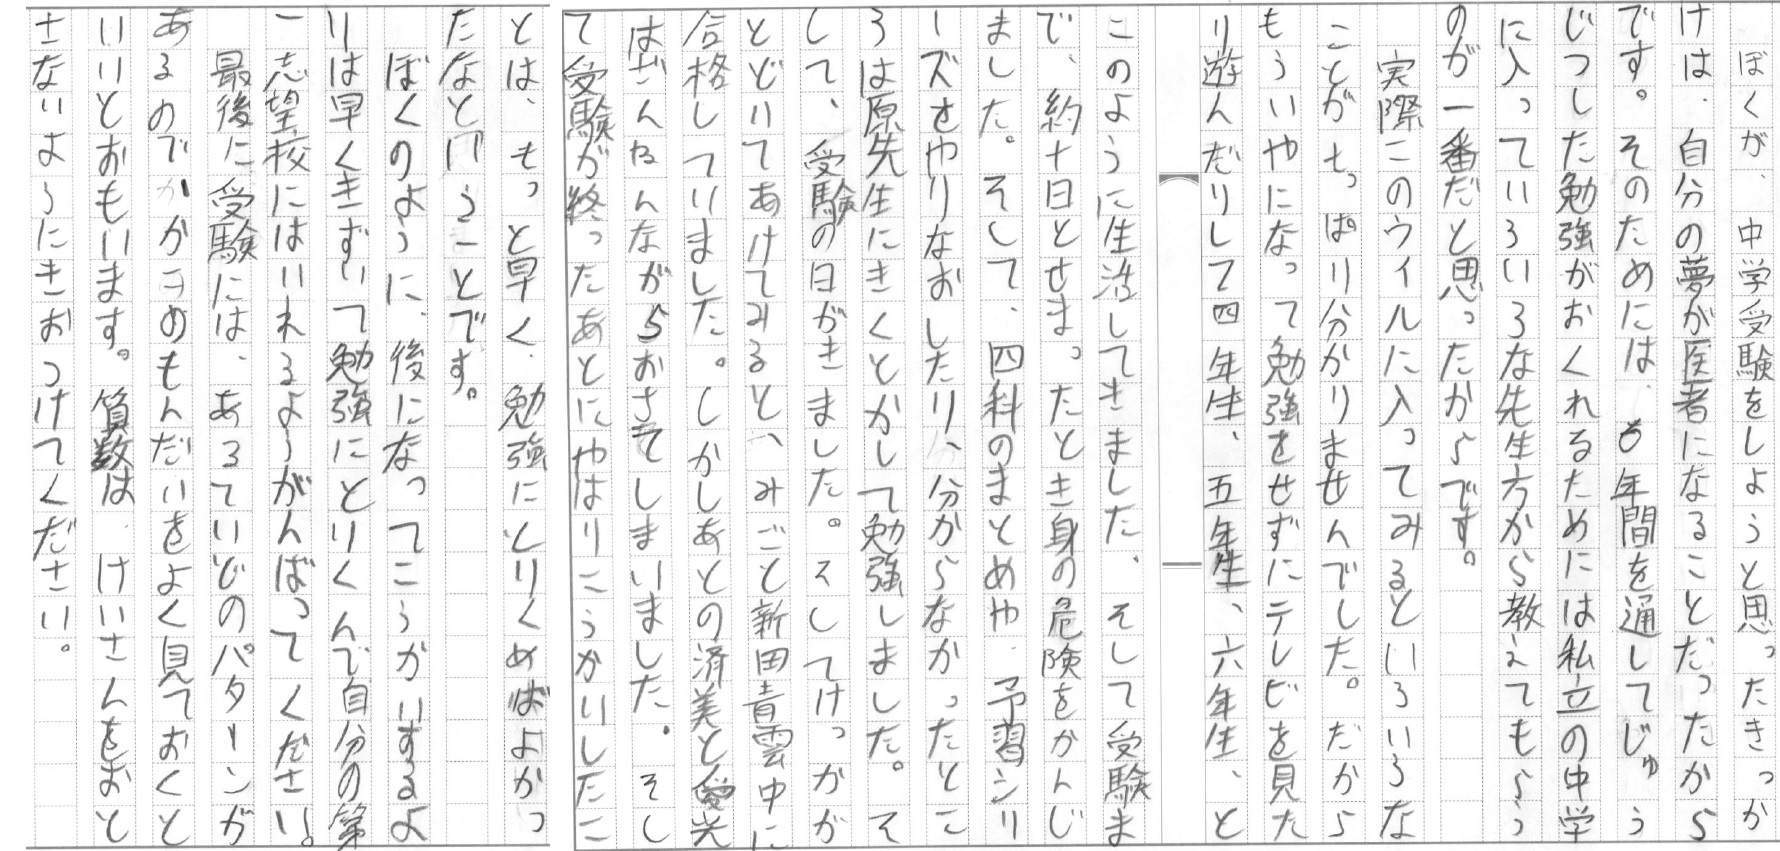 ぼくが、中学受験をしようと思ったきっか
けは、自分の夢が医者になることだったから
です。そのためには、6年間を通してじゅう
じつした勉強がおくれるためには私立の中学
に入っていろいろな先生方から教えてもらう
のが一番だと思ったからです。
実際このウィルに入ってみるといろいろな
ことがもっぱり分かりませんでした。だから
もういやになって勉強をせずにテレビを見た
り遊んだりして四年生、五年生、六年生、と
このように生活してきました、そして受験ま
で、約十日とせまったとき身の危険をかんじ
ました。そして、四科のまとめや、予習シリ
ーズをやりなおしたり、分からなかったとこ
ろは原先生にきくとかして勉強しました。そ
して、受験の日がきました。そしてけっかが
とどいてあけてみると、みごと新田青雲中に
合格していました。しかしあとの済美と愛光
はざんねんながらおさてしまいました。そし
て受験が終ったあとにやはりこうかいしたこ
とは、もっと早く、勉強にとりくめばよかっ
たなということです。
ぼくのように、後になってこうかいするよ
りは早くきずいて勉強にとりくんで自分の第
一志望校にはいれるようがんばってください。
最後に受験には、あるていどのパターンが
あるのでかかこめもんだいをよく見ておくと
いいとおもいます。算数は、けいさんをおと
さないようにきおつけてください。